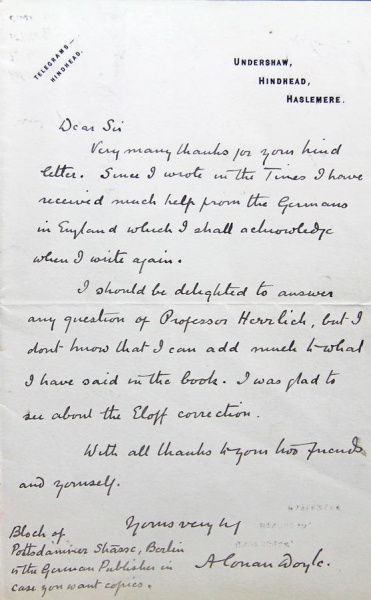 TELEGRAMS—
HINDHEAD.
UNDERSHAW,
HINDHEAD,
HASLEMERE.
Dear Sir
Very many thanks for your kind
letter. Since I wrote in the Times I have
received much help from the Germans
in England which I shall acknowledge
when I write again.
I should be delighted to answer
any question of Professor Herrlich, but I
dont know that I can add much to what
I have said in the book. I was glad to
see about the Eloff correction.
With all thanks to your two friends
and yourself.
Yours very
A Conan Doyle.
Bloch of
Pottsdammer Strasse, Berlin
is the German Publisher in
case you want copies.